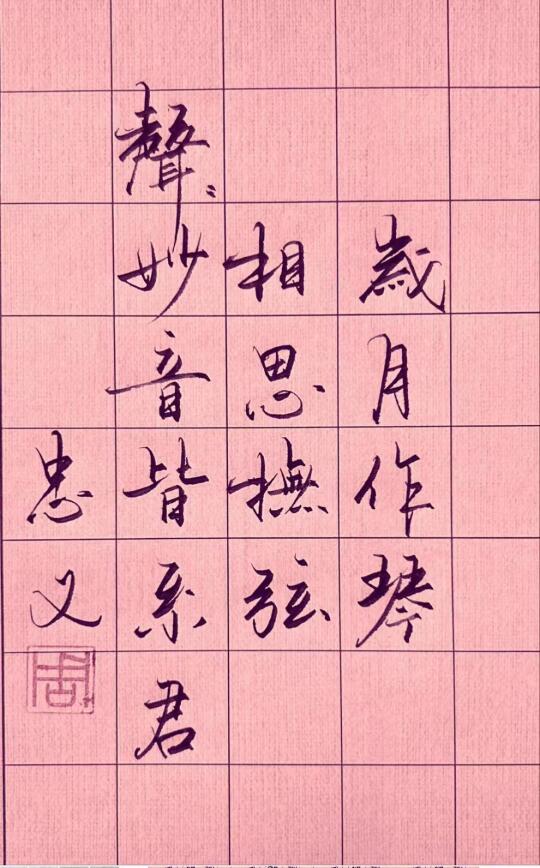 歲月作琴
相思撫弦
聲〻妙音皆系君
忠义
周